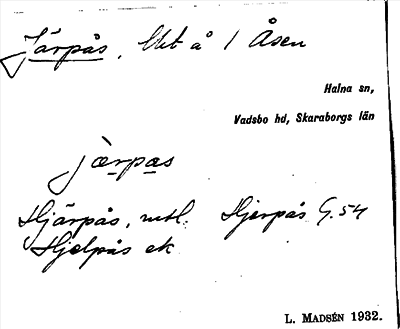 Järpås, Ut å / Åsen
Halna sn,
Vadsbo hd, Skaraborgs län
jærpas
Hjärpås, mtl. Hjerpås G.54
Hjelpås ek
L. MADSÉN 1932.